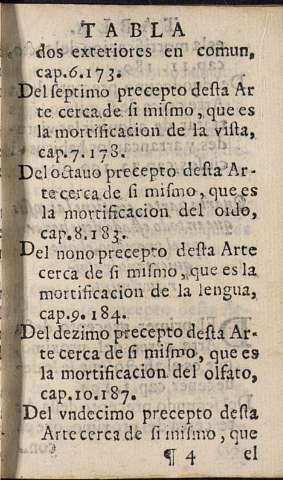 TABLA
dos exteriores en comun,
cap.6.173.
Del septimo precepto desta Ar
te cerca de si mismo, que es
la mortificacion de la vista,
cap.7.178.
Del octauo precepto desta Ar-
te cerca de si mismo, que es
la mortificacion del oido,
cap.8.183.
Del nono precepto desta Arte
cerca de si mismo, que es la
mortificacion de la lengua,
cap.9.184.
Del dezimo precepto desta Ar-
te cerca de si mismo, que es
la mortificacion del olfato,
cap.10.187.
Del vndecimo precepto desta
Arte cerca de si mismo, que
¶ 4 el